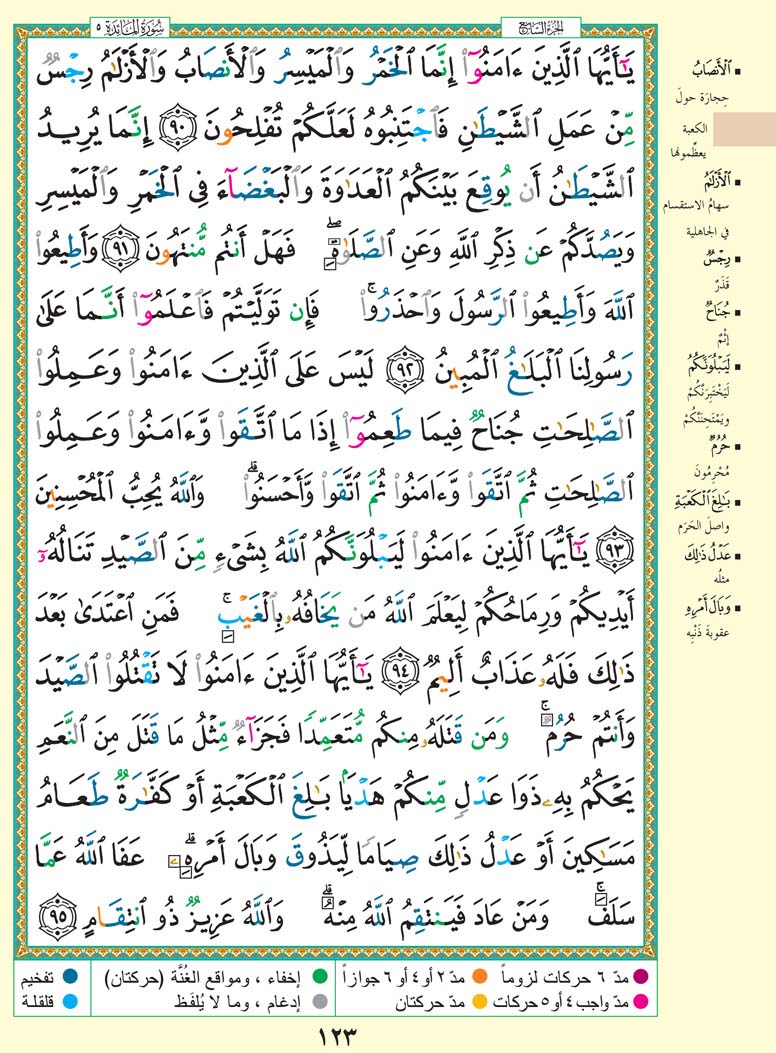 سُورَةُ المَائِدَة ٥
الجُزءُ السَّابِع
يَٰٓأَيُّهَا ٱلَّذِينَ ءَامَنُوٓا۟ إِنَّمَا ٱلْخَمْرُ وَٱلْمَيْسِرُ وَٱلْأَنصَابُ وَٱلْأَزْلَٰمُ رِجْسٌ
مِّنْ عَمَلِ ٱلشَّيْطَٰنِ فَٱجْتَنِبُوهُ لَعَلَّكُمْ تُفْلِحُونَ ٩٠ إِنَّمَا يُرِيدُ
ٱلشَّيْطَٰنُ أَن يُوقِعَ بَيْنَكُمُ ٱلْعَدَٰوَةَ وَٱلْبَغْضَآءَ فِى ٱلْخَمْرِ وَٱلْمَيْسِرِ
وَيَصُدَّكُمْ عَن ذِكْرِ ٱللَّهِ وَعَنِ ٱلصَّلَوٰةِ ۖ فَهَلْ أَنتُم مُّنتَهُونَ ٩١ وَأَطِيعُوا۟
ٱللَّهَ وَأَطِيعُوا۟ ٱلرَّسُولَ وَٱحْذَرُوا۟ ۚ فَإِن تَوَلَّيْتُمْ فَٱعْلَمُوٓا۟ أَنَّمَا عَلَىٰ
رَسُولِنَا ٱلْبَلَٰغُ ٱلْمُبِينُ ٩٢ لَيْسَ عَلَى ٱلَّذِينَ ءَامَنُوا۟ وَعَمِلُوا۟
ٱلصَّٰلِحَٰتِ جُنَاحٌ فِيمَا طَعِمُوٓا۟ إِذَا مَا ٱتَّقَوا۟ وَّءَامَنُوا۟ وَعَمِلُوا۟
ٱلصَّٰلِحَٰتِ ثُمَّ ٱتَّقَوا۟ وَّءَامَنُوا۟ ثُمَّ ٱتَّقَوا۟ وَّأَحْسَنُوا۟ ۗ وَٱللَّهُ يُحِبُّ ٱلْمُحْسِنِينَ
٩٣ يَٰٓأَيُّهَا ٱلَّذِينَ ءَامَنُوا۟ لَيَبْلُوَنَّكُمُ ٱللَّهُ بِشَىْءٍ مِّنَ ٱلصَّيْدِ تَنَالُهُۥٓ
أَيْدِيكُمْ وَرِمَاحُكُمْ لِيَعْلَمَ ٱللَّهُ مَن يَخَافُهُۥ بِٱلْغَيْبِ ۚ فَمَنِ ٱعْتَدَىٰ بَعْدَ
ذَٰلِكَ فَلَهُۥ عَذَابٌ أَلِيمٌ ٩٤ يَٰٓأَيُّهَا ٱلَّذِينَ ءَامَنُوا۟ لَا تَقْتُلُوا۟ ٱلصَّيْدَ
وَأَنتُمْ حُرُمٌ ۚ وَمَن قَتَلَهُۥ مِنكُم مُّتَعَمِّدًا فَجَزَآءٌ مِّثْلُ مَا قَتَلَ مِنَ ٱلنَّعَمِ
يَحْكُمُ بِهِۦ ذَوَا عَدْلٍ مِّنكُمْ هَدْيًۢا بَٰلِغَ ٱلْكَعْبَةِ أَوْ كَفَّٰرَةٌ طَعَامُ
مَسَٰكِينَ أَوْ عَدْلُ ذَٰلِكَ صِيَامًا لِّيَذُوقَ وَبَالَ أَمْرِهِۦ ۗ عَفَا ٱللَّهُ عَمَّا
سَلَفَ ۚ وَمَنْ عَادَ فَيَنتَقِمُ ٱللَّهُ مِنْهُ ۗ وَٱللَّهُ عَزِيزٌ ذُو ٱنتِقَامٍ ٩٥
▪ ٱلْأَنصَابُ
حِجارَة حولَ
الكعبة
يعظِّمونها
▪ ٱلْأَزْلَٰمُ
سهامُ الاستقسام
في الجاهلية
▪ رِجْسٌ
قَذَرٌ
▪ جُنَاحٌ
إثمٌ
▪ لَيَبْلُوَنَّكُمُ
لَيَخْتَبِرَنَّكُمْ
ويَمْتَحِنَنَّكُمْ
▪ حُرُمٌ
مُحْرِمُونَ
▪ بَٰلِغَ ٱلْكَعْبَةِ
واصلَ الحَرَم
▪ عَدْلُ ذَٰلِكَ
مثلُه
▪ وَبَالَ أَمْرِهِ
عقوبةَ ذَنْبِه
مدّ ٦ حركات لزوماً
مدّ ٢ أو ٤ أو ٦ جوازاً
إخفاء ، ومواقع الغُنَّة (حركتان)
تفخيم
مدّ واجب ٤ أو ٥ حركات
مدّ حركتان
إدغام ، وما لا يُلفَظ
قلقلة
١٢٣